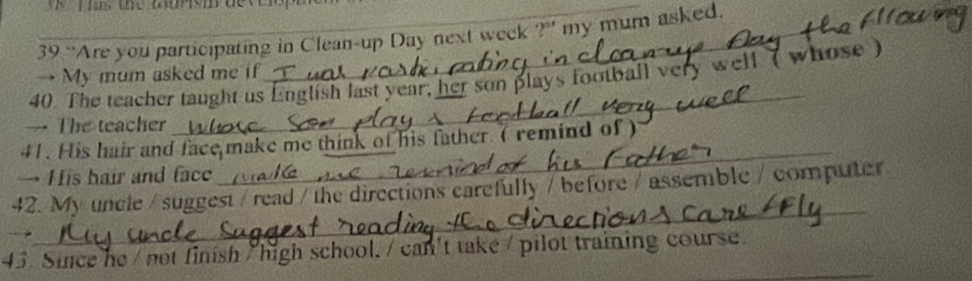 39. "Are you participating in Clean-up Day next week ?" my mum asked.
→ My mum asked me if I was participating in cleanup Day the fllowing
40. The teacher taught us English last year, her son plays football very well ( whose )
→ The teacher whose son plays football very well
41. His hair and face make me think of his father. ( remind of )
→ His hair and face make me remind of his father
42. My uncle / suggest / read / the directions carefully / before / assemble / computer
→ My uncle suggest reading the directions carefully
43. Since he / not finish / high school. / can't take / pilot training course